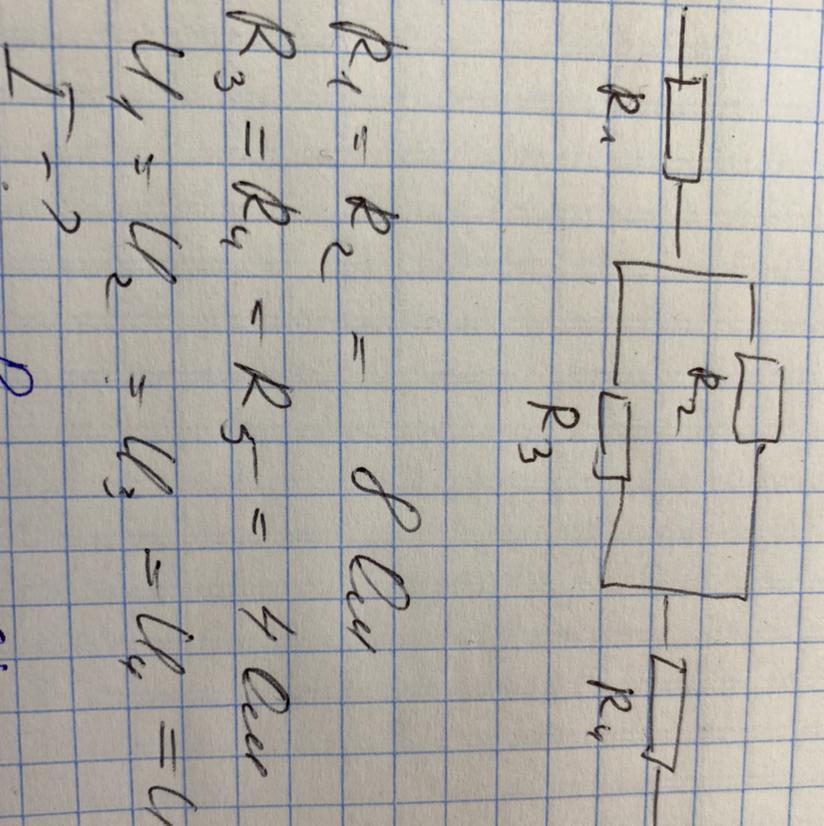 R1
R2
R3
R4
R1 = R2 = 8 Ом
R3 = R4 = R5 = 4 Ом
U1 = U2 = U3 = U4 =
I - ?